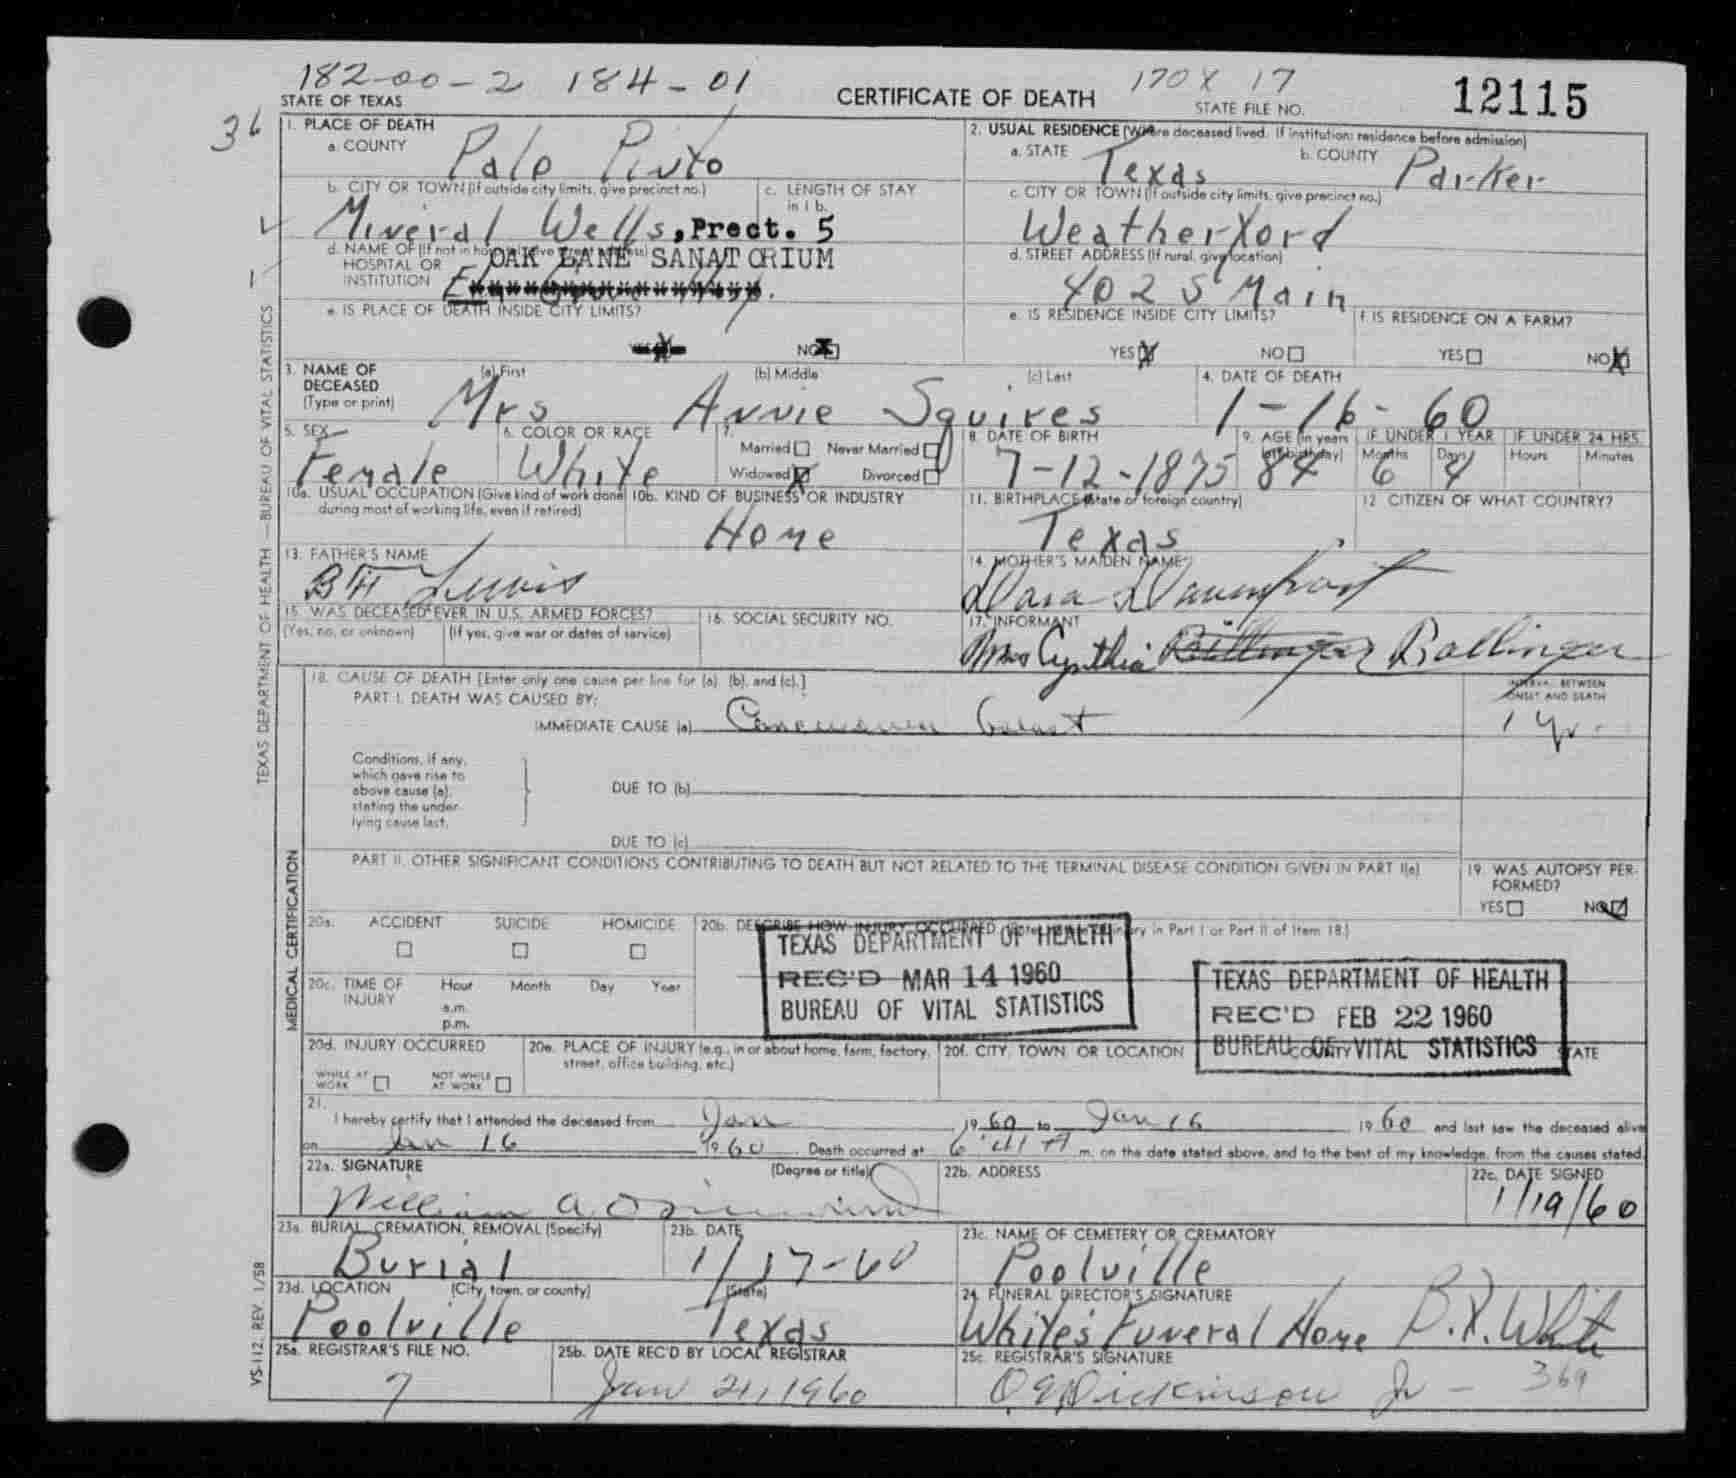 182-00-2 184-01
170X 17
12115
STATE OF TEXAS
CERTIFICATE OF DEATH
STATE FILE NO.
36
1. PLACE OF DEATH
a. COUNTY
Palo Pinto
2. USUAL RESIDENCE (Where deceased lived. If institution: residence before admission)
a. STATE
Texas
b. COUNTY
Parker
b. CITY OR TOWN (If outside city limits, give precinct no.)
Mineral Wells, Prect. 5
c. LENGTH OF STAY
in 1 b.
c. CITY OR TOWN (If outside city limits, give precinct no.)
Weatherford
d. NAME OF (If not in hospital, give street address)
HOSPITAL OR
INSTITUTION
OAK LANE SANATORIUM
d. STREET ADDRESS (If rural, give location)
402 S Main
e. IS PLACE OF DEATH INSIDE CITY LIMITS?
NO X
e. IS RESIDENCE INSIDE CITY LIMITS?
YES X NO
f. IS RESIDENCE ON A FARM?
YES NO X
3. NAME OF
DECEASED
(Type or print)
(a) First
(b) Middle
(c) Last
Mrs Annie Squires
4. DATE OF DEATH
1-16-60
5. SEX
Female
6. COLOR OR RACE
White
7.
Married Never Married
Widowed X Divorced
8. DATE OF BIRTH
7-12-1875
9. AGE (In years
last birthday)
84
IF UNDER 1 YEAR
Months Days
6 4
IF UNDER 24 HRS.
Hours Minutes
10a. USUAL OCCUPATION (Give kind of work done
during most of working life, even if retired)
10b. KIND OF BUSINESS OR INDUSTRY
Home
11. BIRTHPLACE (State or foreign country)
Texas
12. CITIZEN OF WHAT COUNTRY?
13. FATHER'S NAME
BH Lewis
14. MOTHER'S MAIDEN NAME
Davenport
15. WAS DECEASED EVER IN U.S. ARMED FORCES?
(Yes, no, or unknown) (If yes, give war or dates of service)
16. SOCIAL SECURITY NO.
17. INFORMANT
Mrs Cynthia Ballinger
18. CAUSE OF DEATH [Enter only one cause per line for (a), (b), and (c).]
PART I. DEATH WAS CAUSED BY:
IMMEDIATE CAUSE (a)
INTERVAL BETWEEN
ONSET AND DEATH
1 yr.
Conditions, if any,
which gave rise to
above cause (a),
stating the under-
lying cause last.
DUE TO (b)
DUE TO (c)
PART II. OTHER SIGNIFICANT CONDITIONS CONTRIBUTING TO DEATH BUT NOT RELATED TO THE TERMINAL DISEASE CONDITION GIVEN IN PART I(a)
19. WAS AUTOPSY PER-
FORMED?
YES NO
20a. ACCIDENT SUICIDE HOMICIDE
20b. DESCRIBE HOW INJURY OCCURRED. (Enter nature of injury in Part I or Part II of Item 18.)
TEXAS DEPARTMENT OF HEALTH
REC'D MAR 14 1960
BUREAU OF VITAL STATISTICS
TEXAS DEPARTMENT OF HEALTH
REC'D FEB 22 1960
BUREAU OF VITAL STATISTICS
20c. TIME OF
INJURY
Hour Month Day Year
a.m.
p.m.
20d. INJURY OCCURRED
WHILE AT
WORK
NOT WHILE
AT WORK
20e. PLACE OF INJURY (e.g., in or about home, farm, factory,
street, office building, etc.)
20f. CITY, TOWN, OR LOCATION
COUNTY
STATE
21.
I hereby certify that I attended the deceased from Jan 1960 to Jan 16 1960 and last saw the deceased alive
on Jan 16 1960. Death occurred at m. on the date stated above, and to the best of my knowledge, from the causes stated.
22a. SIGNATURE
(Degree or title)
William A.
22b. ADDRESS
22c. DATE SIGNED
1/19/60
23a. BURIAL, CREMATION, REMOVAL (Specify)
Burial
23b. DATE
1/17-60
23c. NAME OF CEMETERY OR CREMATORY
Poolville
23d. LOCATION
(City, town, or county)
(State)
Poolville Texas
24. FUNERAL DIRECTOR'S SIGNATURE
White's Funeral Home B.X. White
25a. REGISTRAR'S FILE NO.
7
25b. DATE REC'D BY LOCAL REGISTRAR
Jan 21, 1960
25c. REGISTRAR'S SIGNATURE
O E Dickinson Jr - 369
TEXAS DEPARTMENT OF HEALTH — BUREAU OF VITAL STATISTICS
MEDICAL CERTIFICATION
VS-112, REV. 1/58